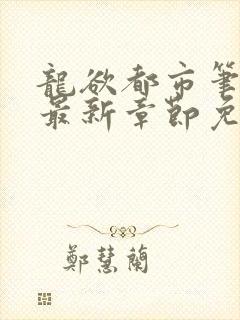 龍欲都市筆
最新章節免
鄭慧蘭